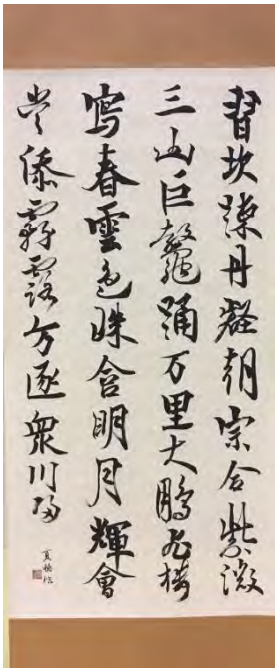 習坎踈丹壑朝宗合紫微
三山巨鼇踊万里大鵬飛樓
寫春雲色珠含明月輝會
當添霧露方逐衆川歸